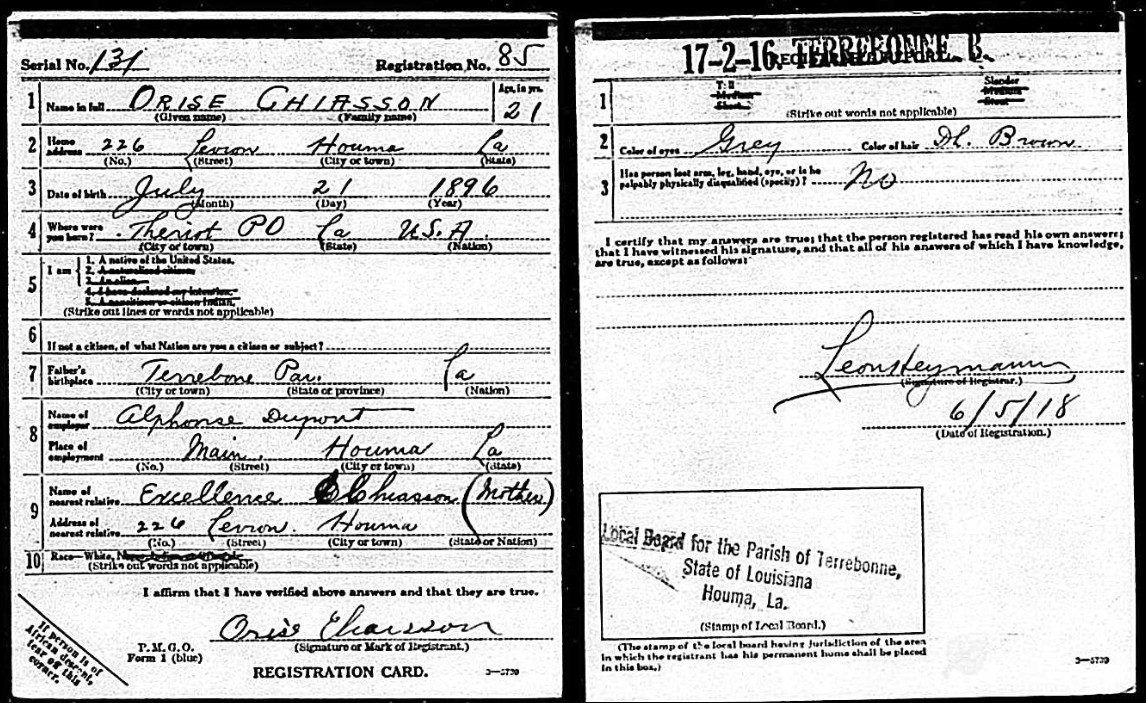 Serial No. 131 Registration No. 85
1 Name in full ORISE CHIASSON Age, in yrs. 21
(Given name) (Family name)
2 Home address 226 Levron Houma La
(No.) (Street) (City or town) (State)
3 Date of birth July 21 1896
(Month) (Day) (Year)
4 Where were you born? Theriot PO La U.S.A.
(City or town) (State) (Nation)
5 I am
1. A native of the United States.
2. A naturalized citizen.
3. An alien.
4. I have declared my intention.
5. A noncitizen or citizen Indian.
(Strike out lines or words not applicable)
6 If not a citizen, of what Nation are you a citizen or subject?
7 Father's birthplace Terrebone Par. La
(City or town) (State or province) (Nation)
8 Name of employer Alphonse Dupont
Place of employment Main. Houma La
(No.) (Street) (City or town) (State)
9 Name of nearest relative Excellence Chiasson (Mother)
Address of nearest relative 226 Levron. Houma
(No.) (Street) (City or town) (State or Nation)
10 Race—White,
(Strike out words not applicable)
I affirm that I have verified above answers and that they are true.
Orise Chaisson
(Signature or Mark of Registrant.)
P. M. G. O.
Form 1 (blue)
REGISTRATION CARD. 3—5739
If person is of
African descent,
tear off this
corner.
17-2-16. TERREBONNE. B.
REGISTRAR'S REPORT
1 Tall Medium Short Slender Medium Stout
(Strike out words not applicable)
2 Color of eyes Grey Color of hair Dk. Brown
3 Has person lost arm, leg, hand, eye, or is he
palpably physically disqualified (specify)? No
I certify that my answers are true; that the person registered has read his own answers;
that I have witnessed his signature, and that all of his answers of which I have knowledge,
are true, except as follows:
Leon Heymann
(Signature of Registrar.)
6/5/18
(Date of Registration.)
Local Board for the Parish of Terrebonne,
State of Louisiana
Houma, La.
(Stamp of Local Board.)
(The stamp of the local board having jurisdiction of the area
in which the registrant has his permanent home shall be placed
in this box.)
3—5739